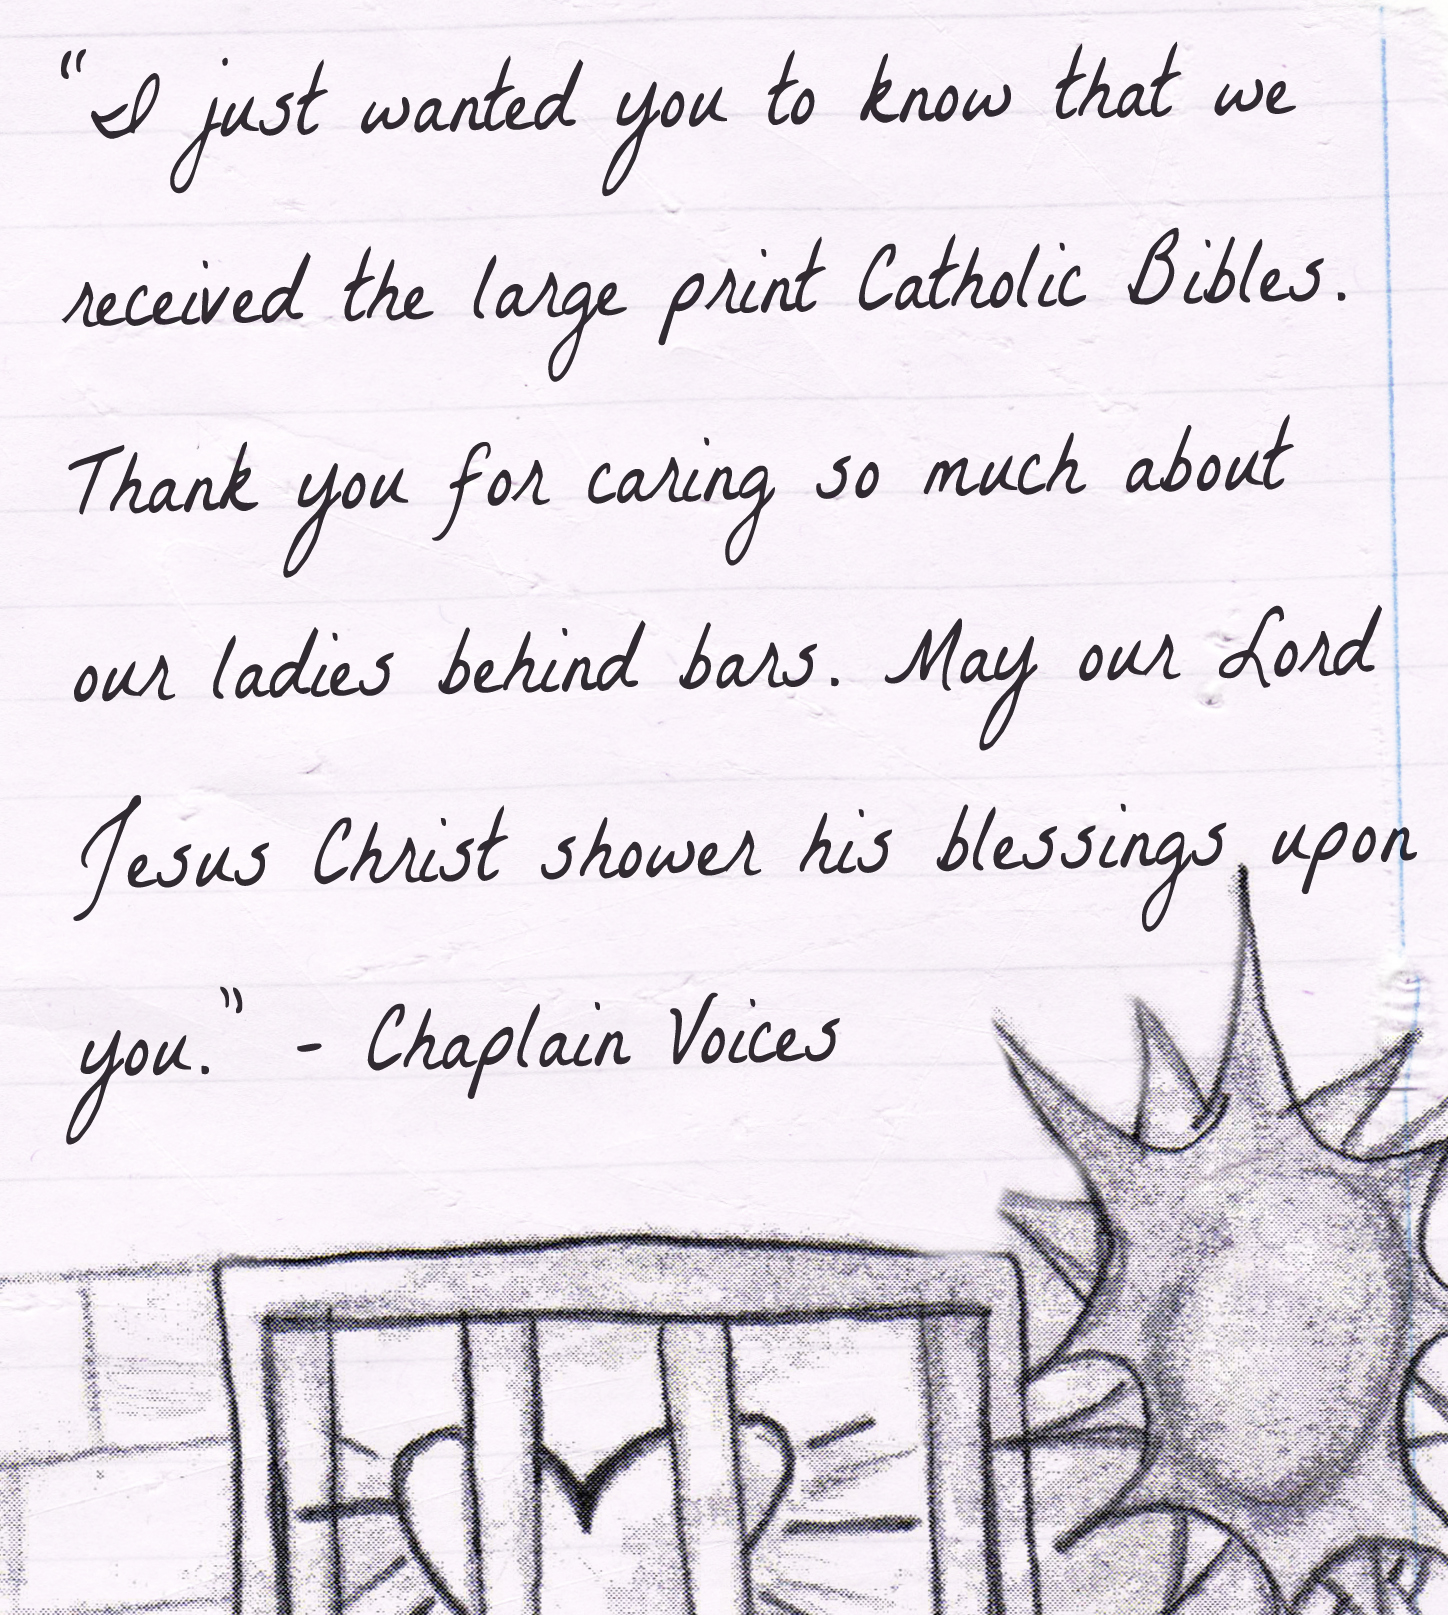 "I just wanted you to know that we
received the large print Catholic Bibles.
Thank you for caring so much about
our ladies behind bars. May our Lord
Jesus Christ shower his blessings upon
you." - Chaplain Voices